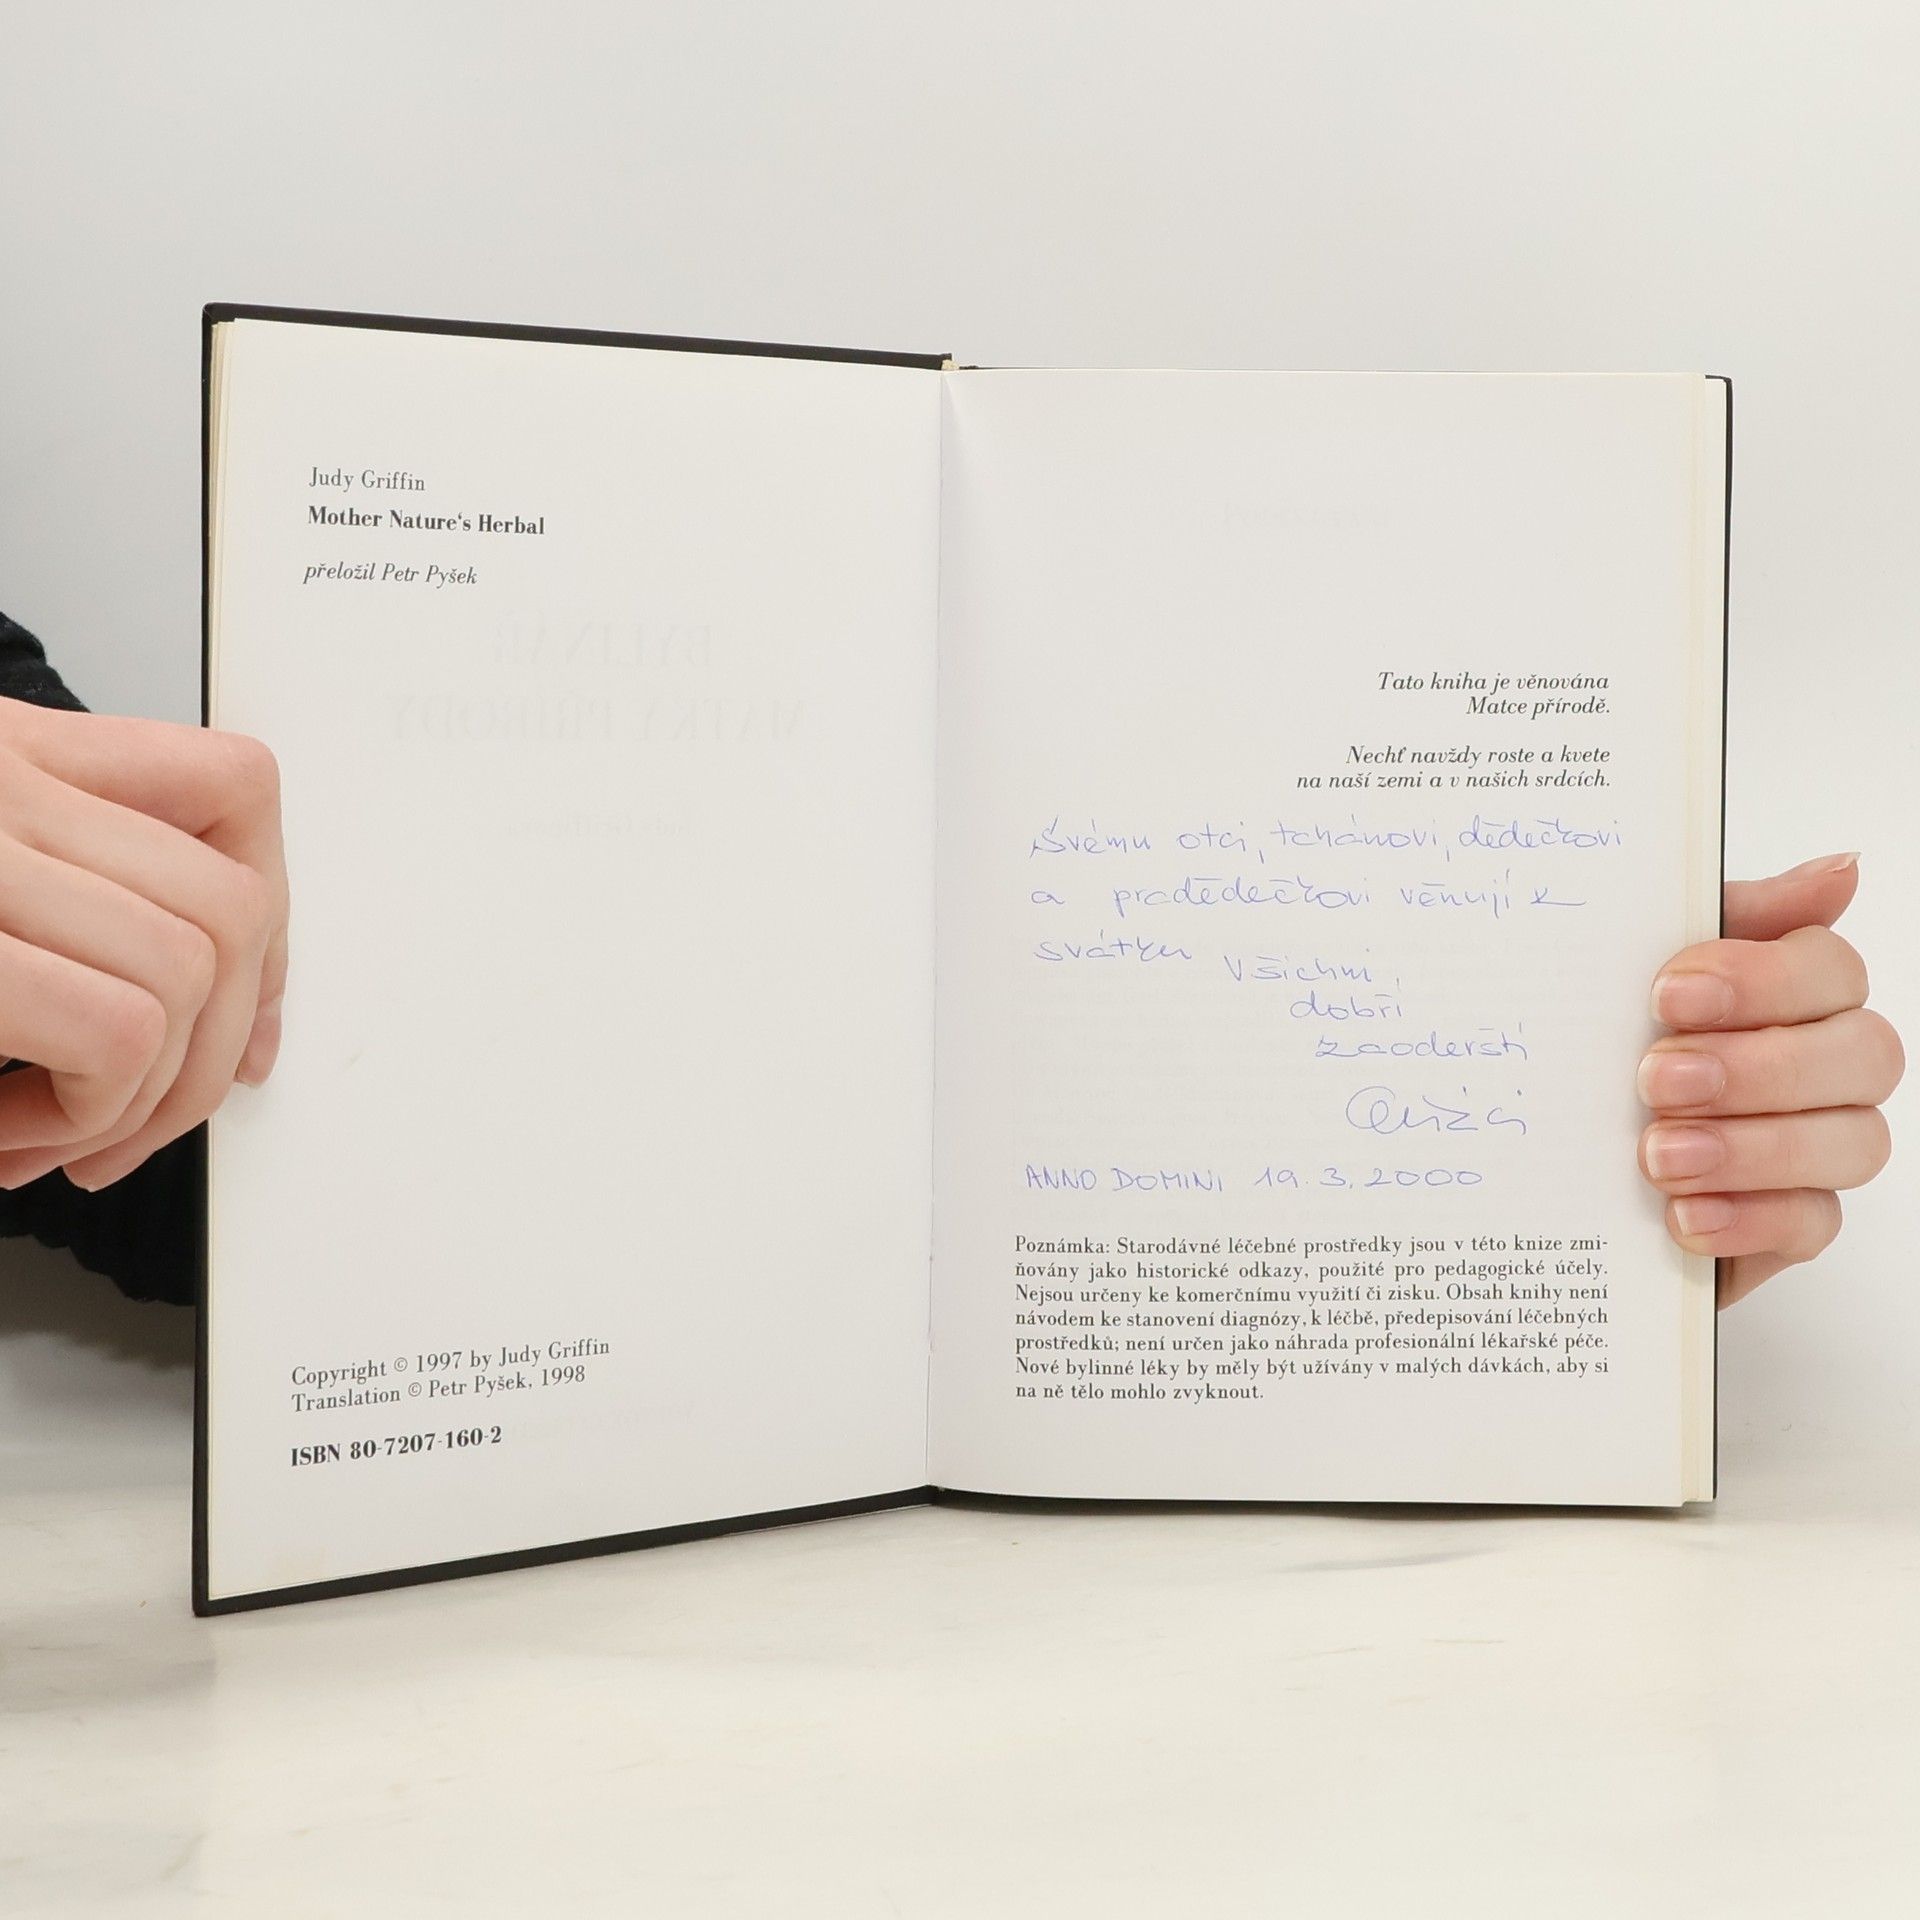 Judy Griffin
Mother Nature‘s Herbal
přeložil Petr Pyšek
Copyright © 1997 by Judy Griffin
Translation © Petr Pyšek, 1998
ISBN 80-7207-160-2
Tato kniha je věnována
Matce přírodě.
Nechť navždy roste a kvete
na naší zemi a v našich srdcích.
Svému otci, tchánovi, dědečkovi
a pradědečkovi věnují k
svátku všichni,
dobří
zaoderští
ANNO DOMINI 19.3.2000
Poznámka: Starodávné léčebné prostředky jsou v této knize zmi-
ňovány jako historické odkazy, použité pro pedagogické účely.
Nejsou určeny ke komerčnímu využití či zisku. Obsah knihy není
návodem ke stanovení diagnózy, k léčbě, předepisování léčebných
prostředků; není určen jako náhrada profesionální lékařské péče.
Nové bylinné léky by měly být užívány v malých dávkách, aby si
na ně tělo mohlo zvyknout.